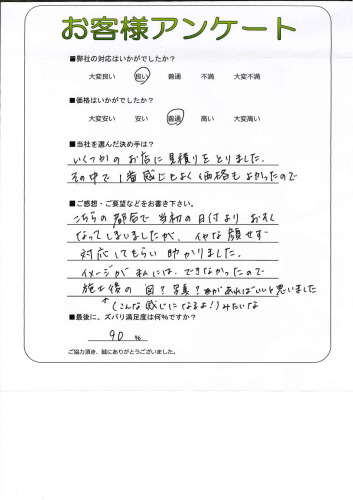 お客様アンケート
■弊社の対応はいかがでしたか？
大変良い 良い 普通 不満 大変不満
■価格はいかがでしたか？
大変安い 安い 普通 高い 大変高い
■当社を選んだ決め手は？
いくつかのお店に見積りをとりました。
その中で1番感じもよく価格もよかったので
■ご感想・ご要望などをお書き下さい。
こちらの都合で当初の日付よりおそく
なってしまいましたが、イヤな顔せず
対応してもらい助かりました。
イメージが私には、できなかったので
施工後の図？写真？があればいいと思いました
↑(こんな感じになるよ！)みたいな
■最後に、ズバリ満足度は何%ですか？
90 %
ご協力頂き、誠にありがとうございました。